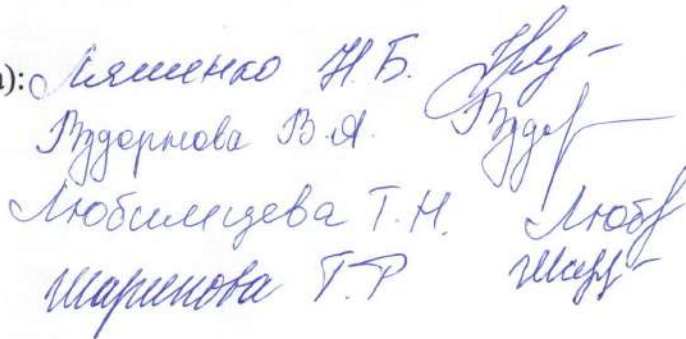 а): Ляшенко Н.Б.
Вздорнова В.Я.
Любимцева Т.Н. Люб
Шарипова Т.Р